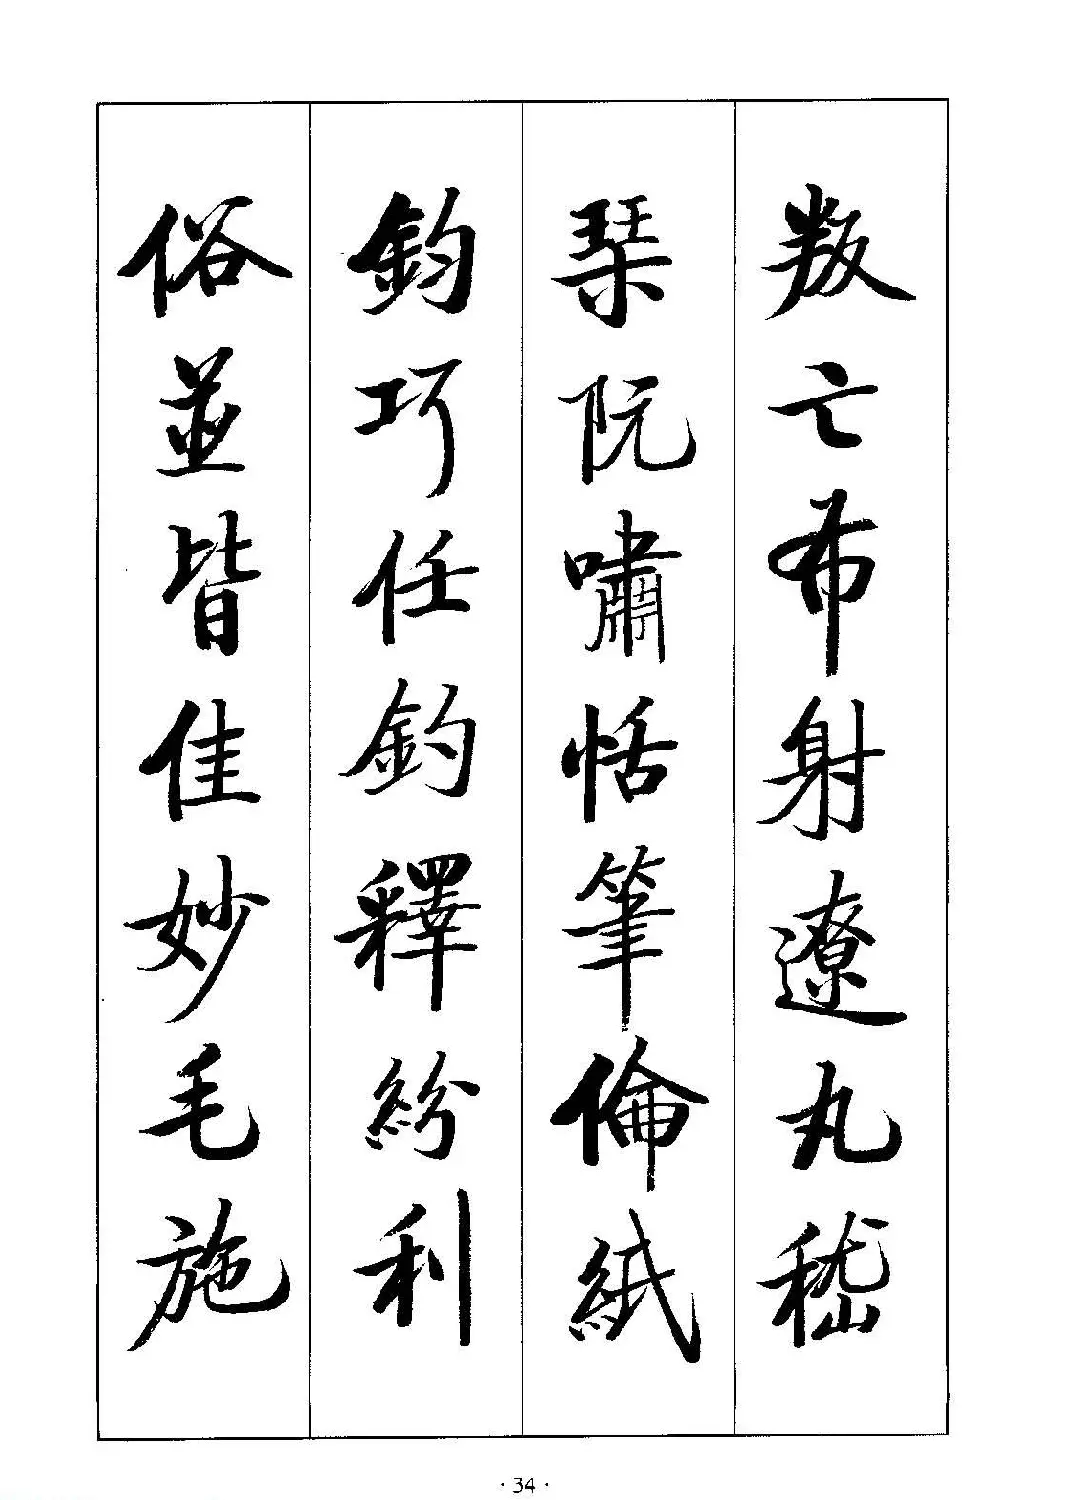 叛亡布射遼丸嵇
琹阮嘯恬筆倫紙
鈞巧任釣釋紛利
俗並皆佳妙毛施
· 34 ·